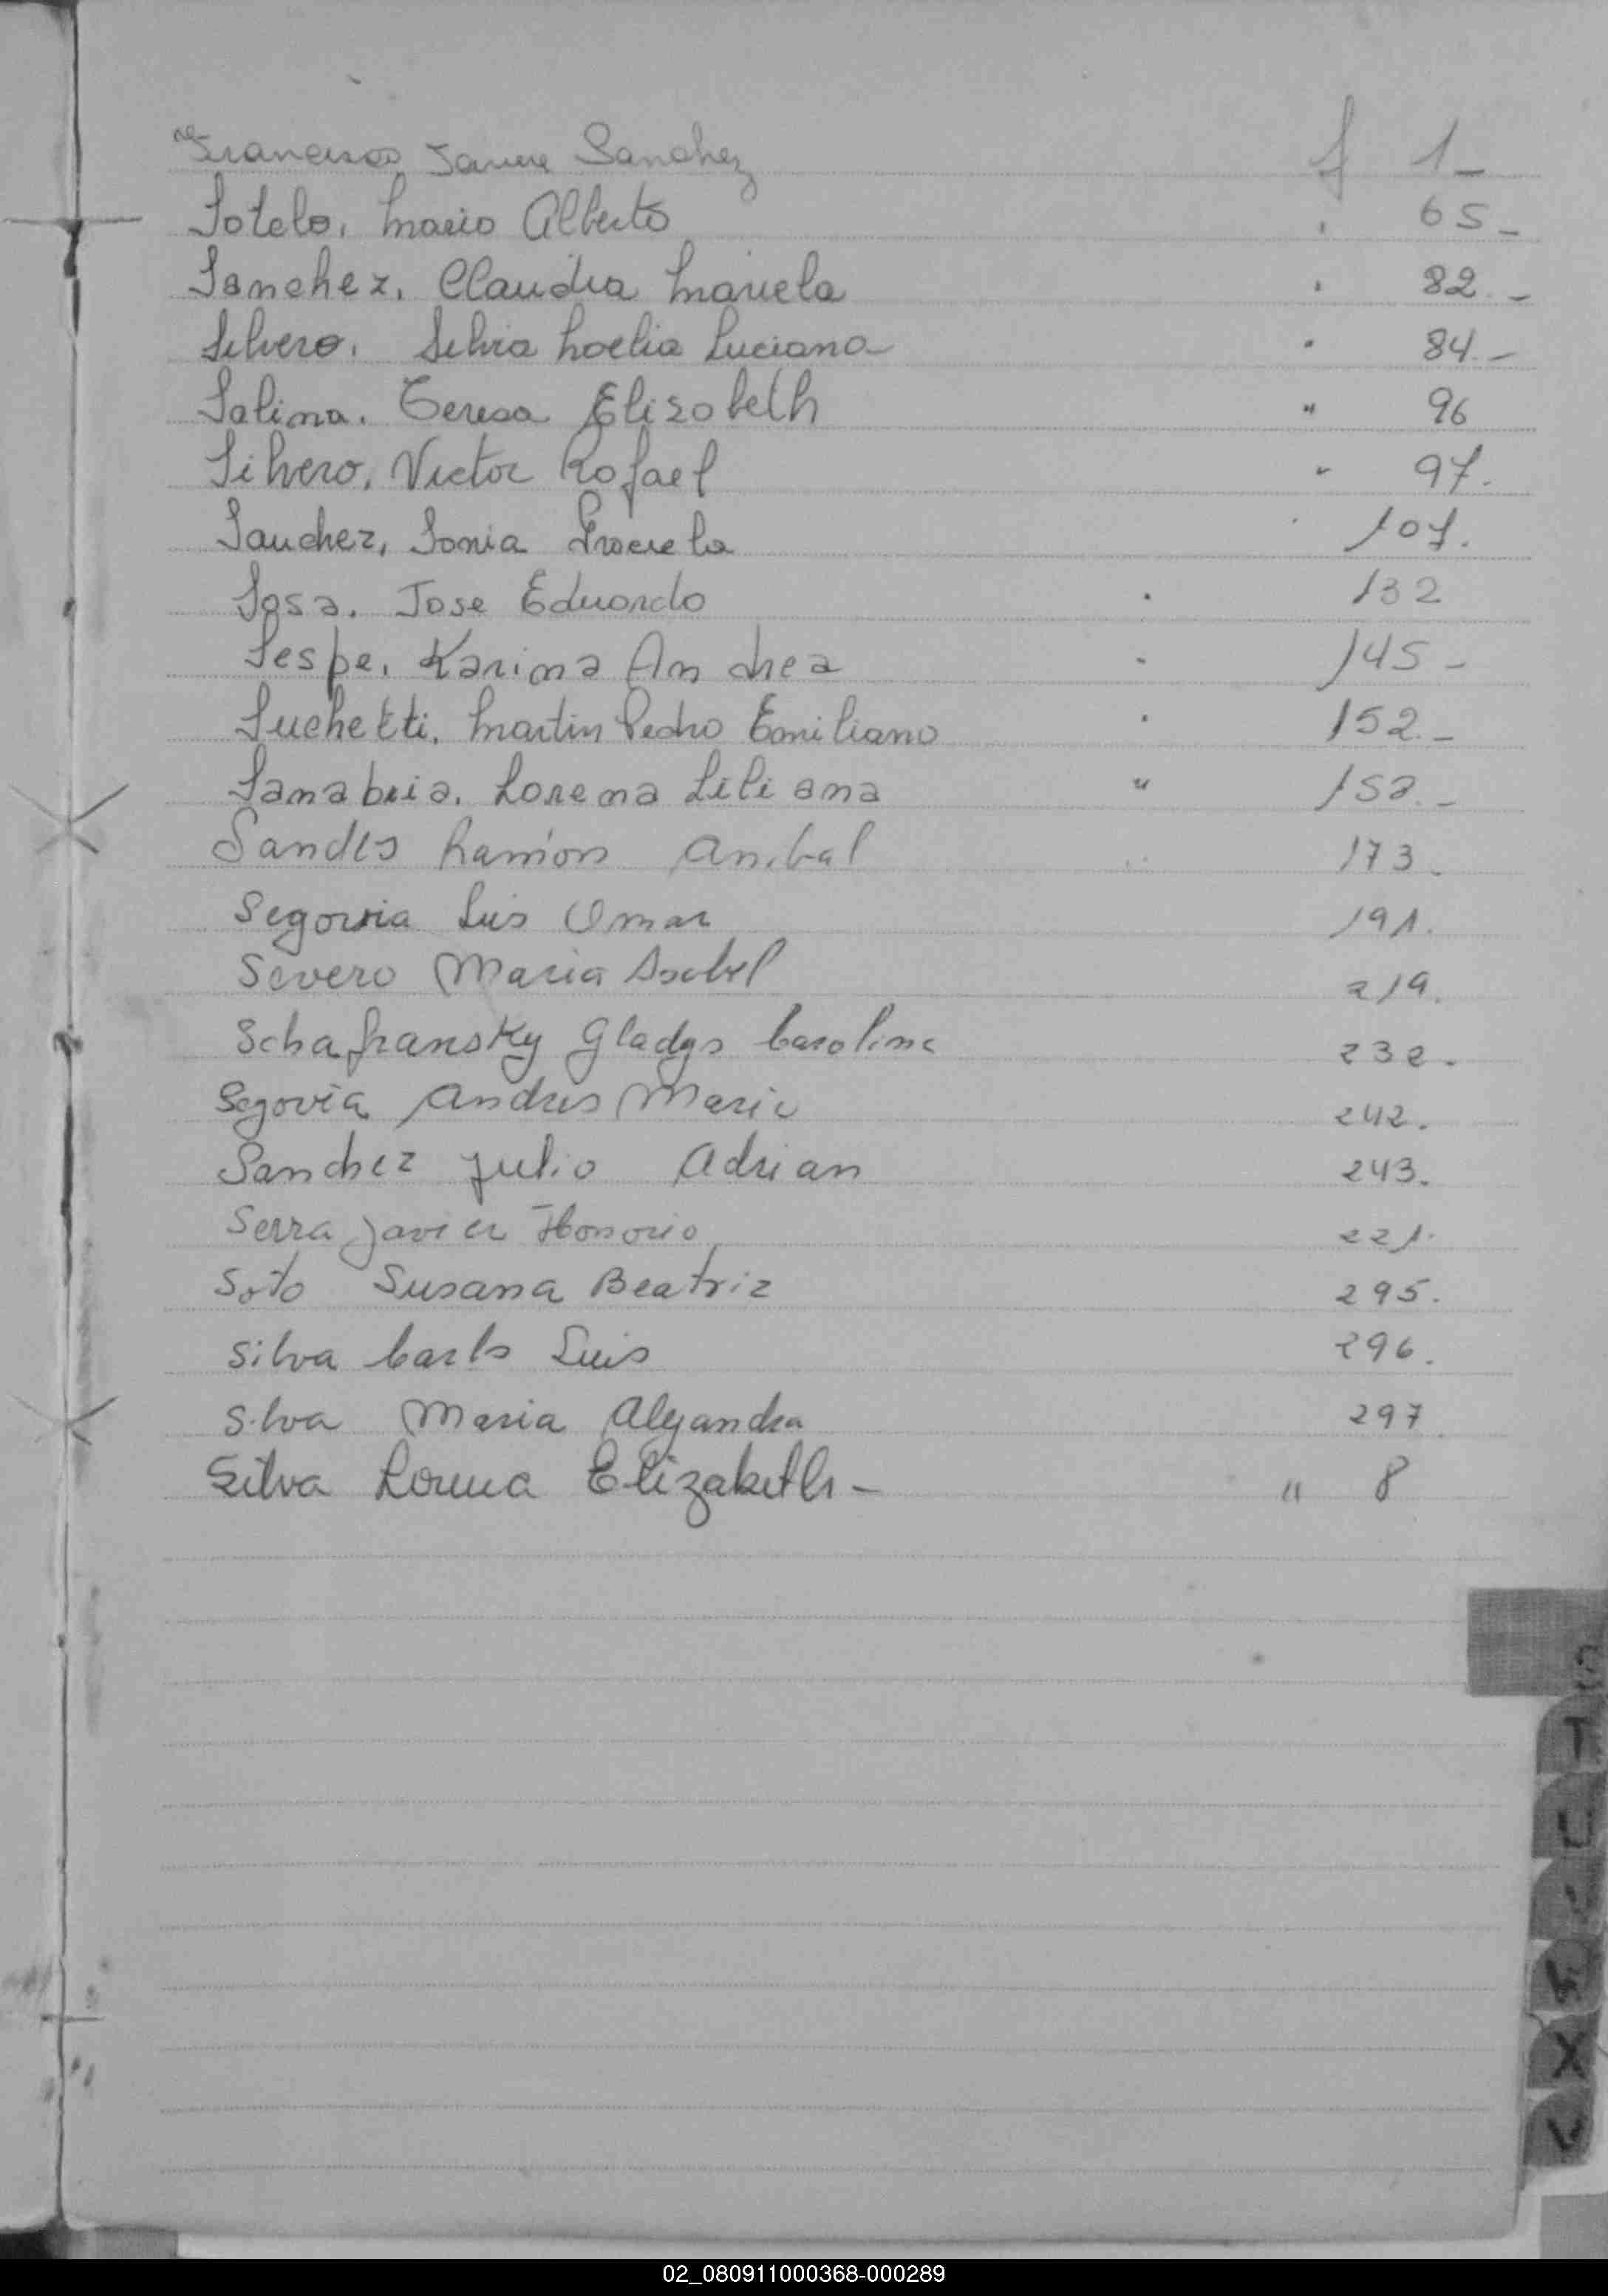 Francisco Javier Sanchez f 1_
Sotelo, Mario Alberto " 65_
Sanchez, Claudia Mariela " 82_
Silvero, Silvia Noelia Luciana " 84_
Salina, Teresa Elizabeth " 96
Silvero, Victor Rafael " 97.
Sanchez, Sonia " 107.
Sosa, Jose Eduardo " 132
Sespe, Karina Andrea " 145_
Suchetti, Martin Pedro Emiliano " 152._
Sanabria, Lorena Liliana " 153._
Sandes Ramón Anibal " 173.
Segovia Luis Omar 191.
Severo Maria Isabel 219.
Schafransky Gladys Carolina 232.
Segovia Andres Mario 242.
Sanchez Julio Adrian 243.
Serra Javier Honorio 221.
Soto Susana Beatriz 295.
Silva Carlos Luis 296.
Silva Maria Alejandra 297.
Silva Lorena Elizabeth - " 8
S
T
U
X
02_080911000368-000289